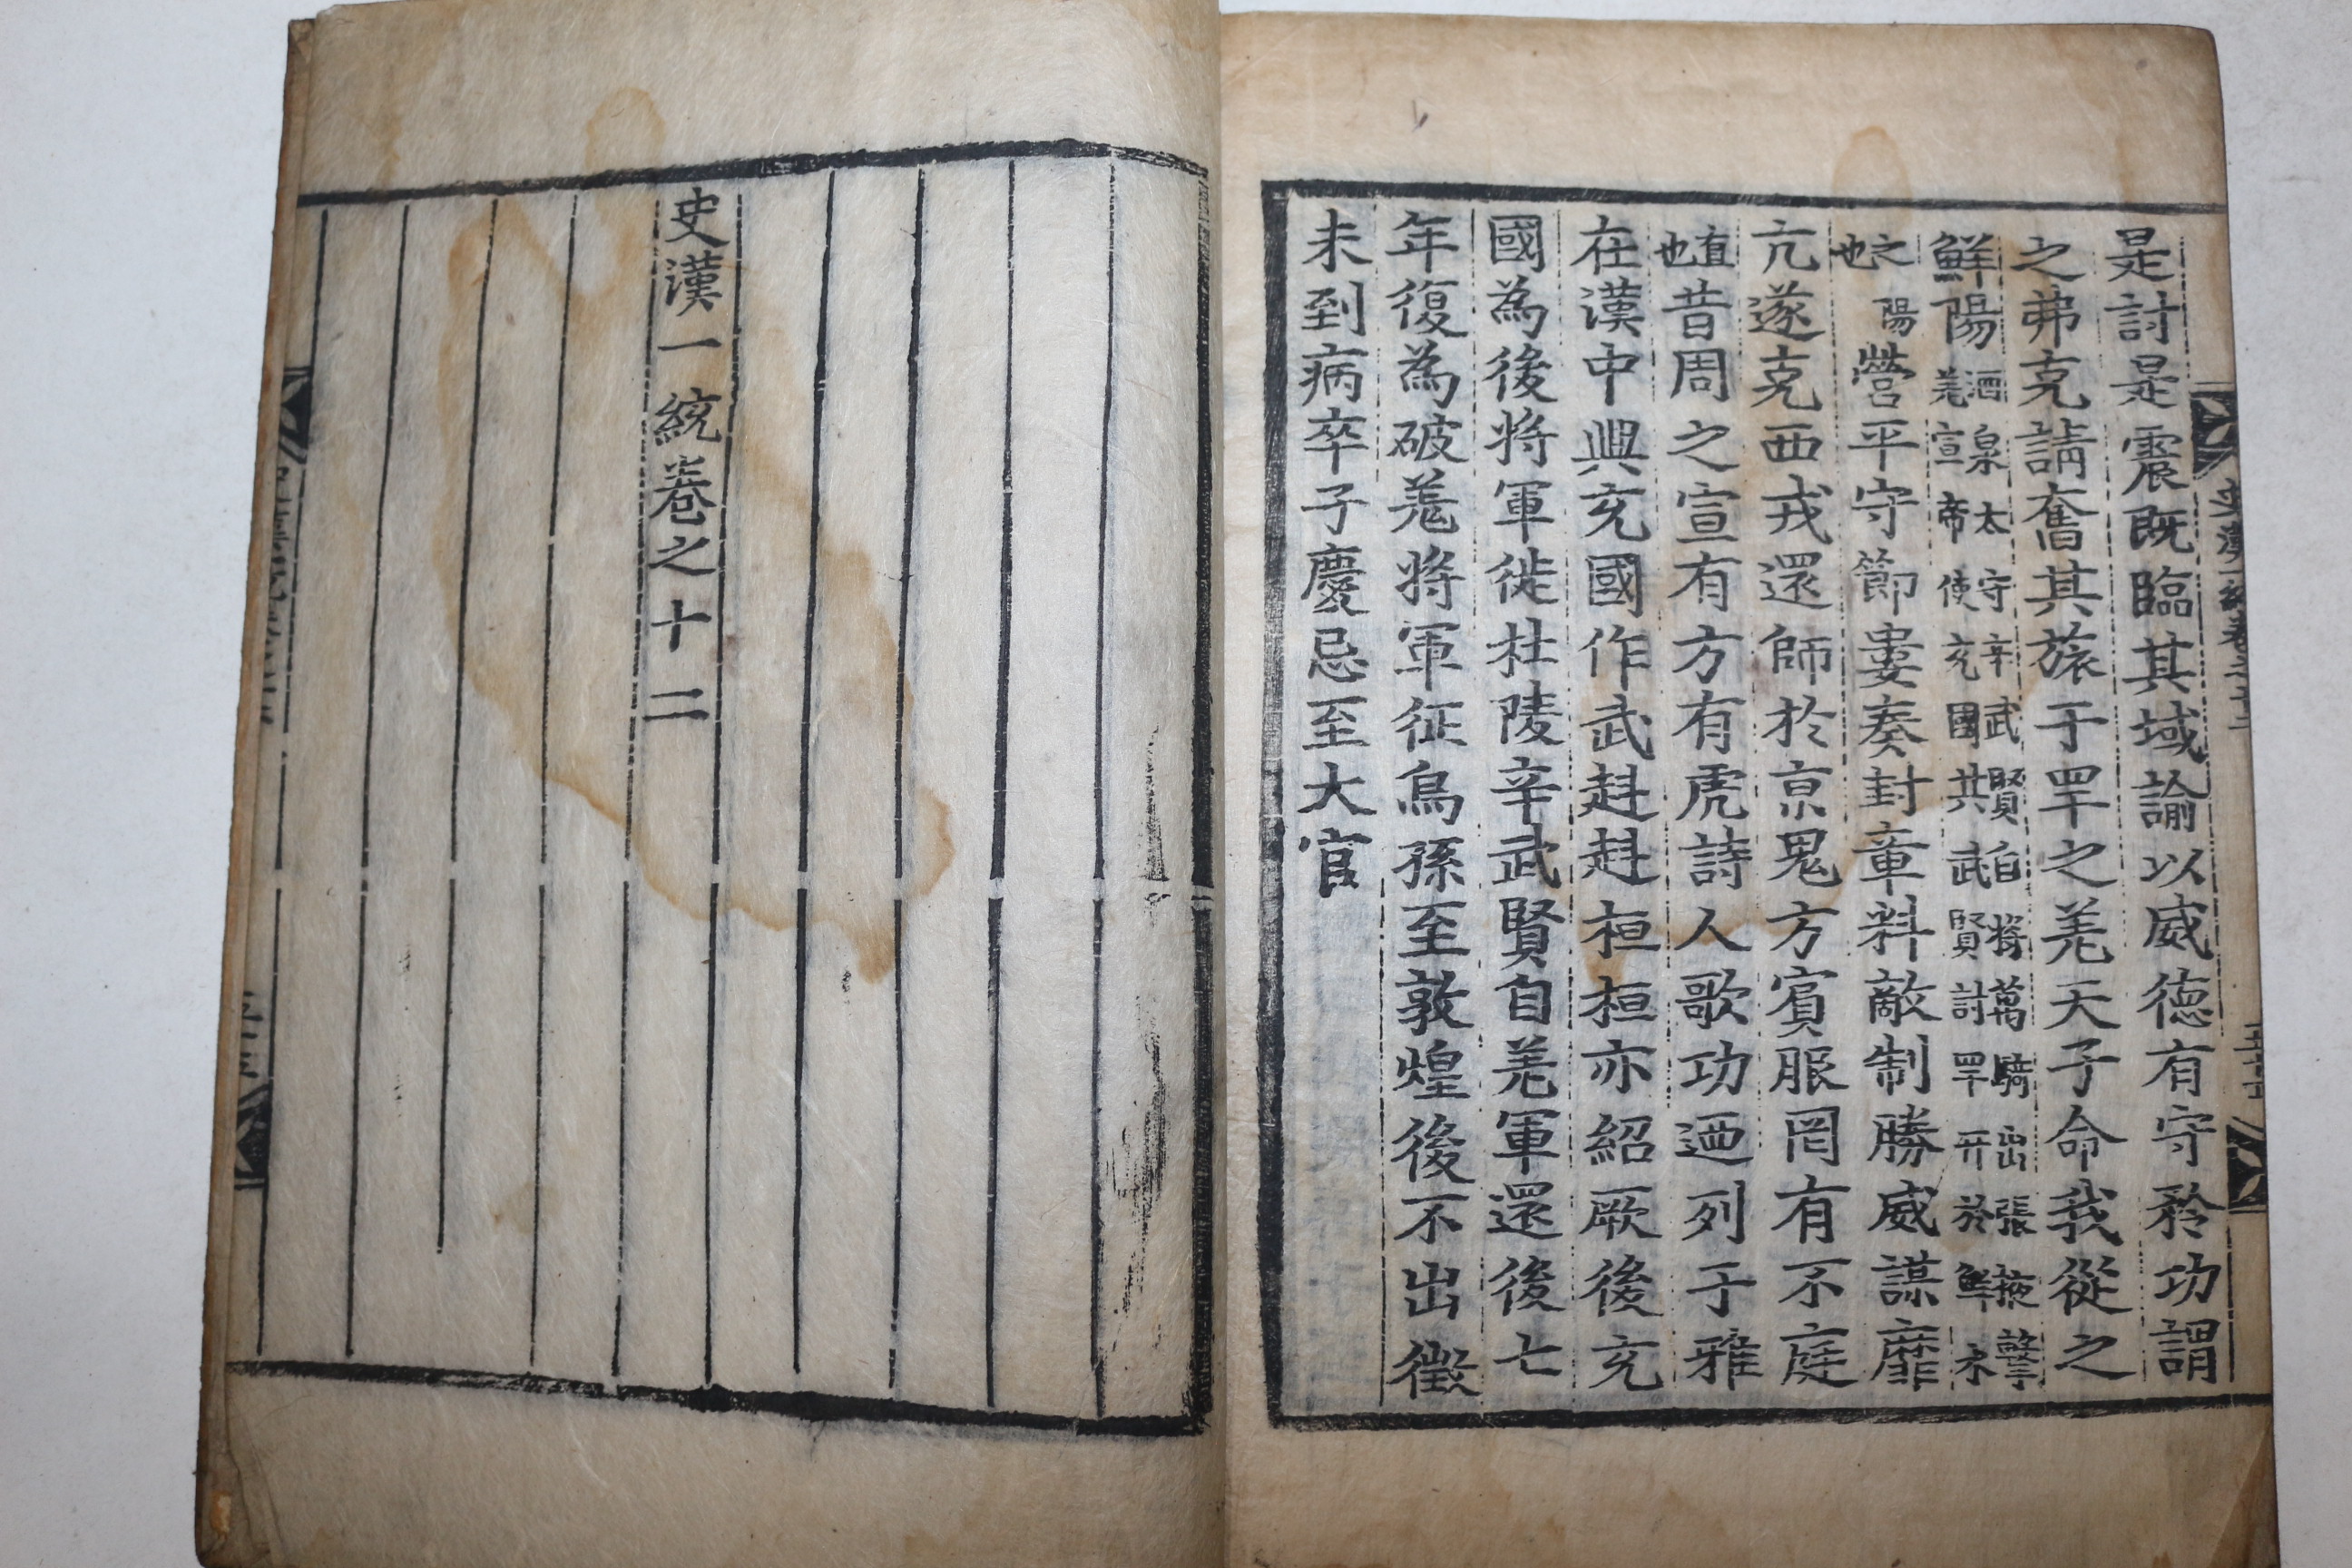 史漢一統卷之十二
是討是震既臨其域諭以威德有守矜功謂
之弗克請奮其旅于罕之羌天子命我從之
鮮陽
酒泉太守辛武賢自將萬騎出張掖擊
羌宣帝使充國共武賢討罕幵於鮮水
之陽
也
營平守節婁奏封章料敵制勝威謀靡
亢遂克西戎還師於京鬼方賓服罔有不庭
直
也
昔周之宣有方有虎詩人歌功迺列于雅
在漢中興充國作武赳赳桓桓亦紹厥後充
國為後將軍徙杜陵辛武賢自羌軍還後七
年復為破羌將軍征烏孫至敦煌後不出徵
未到病卒子慶忌至大官
史漢一統卷之十二